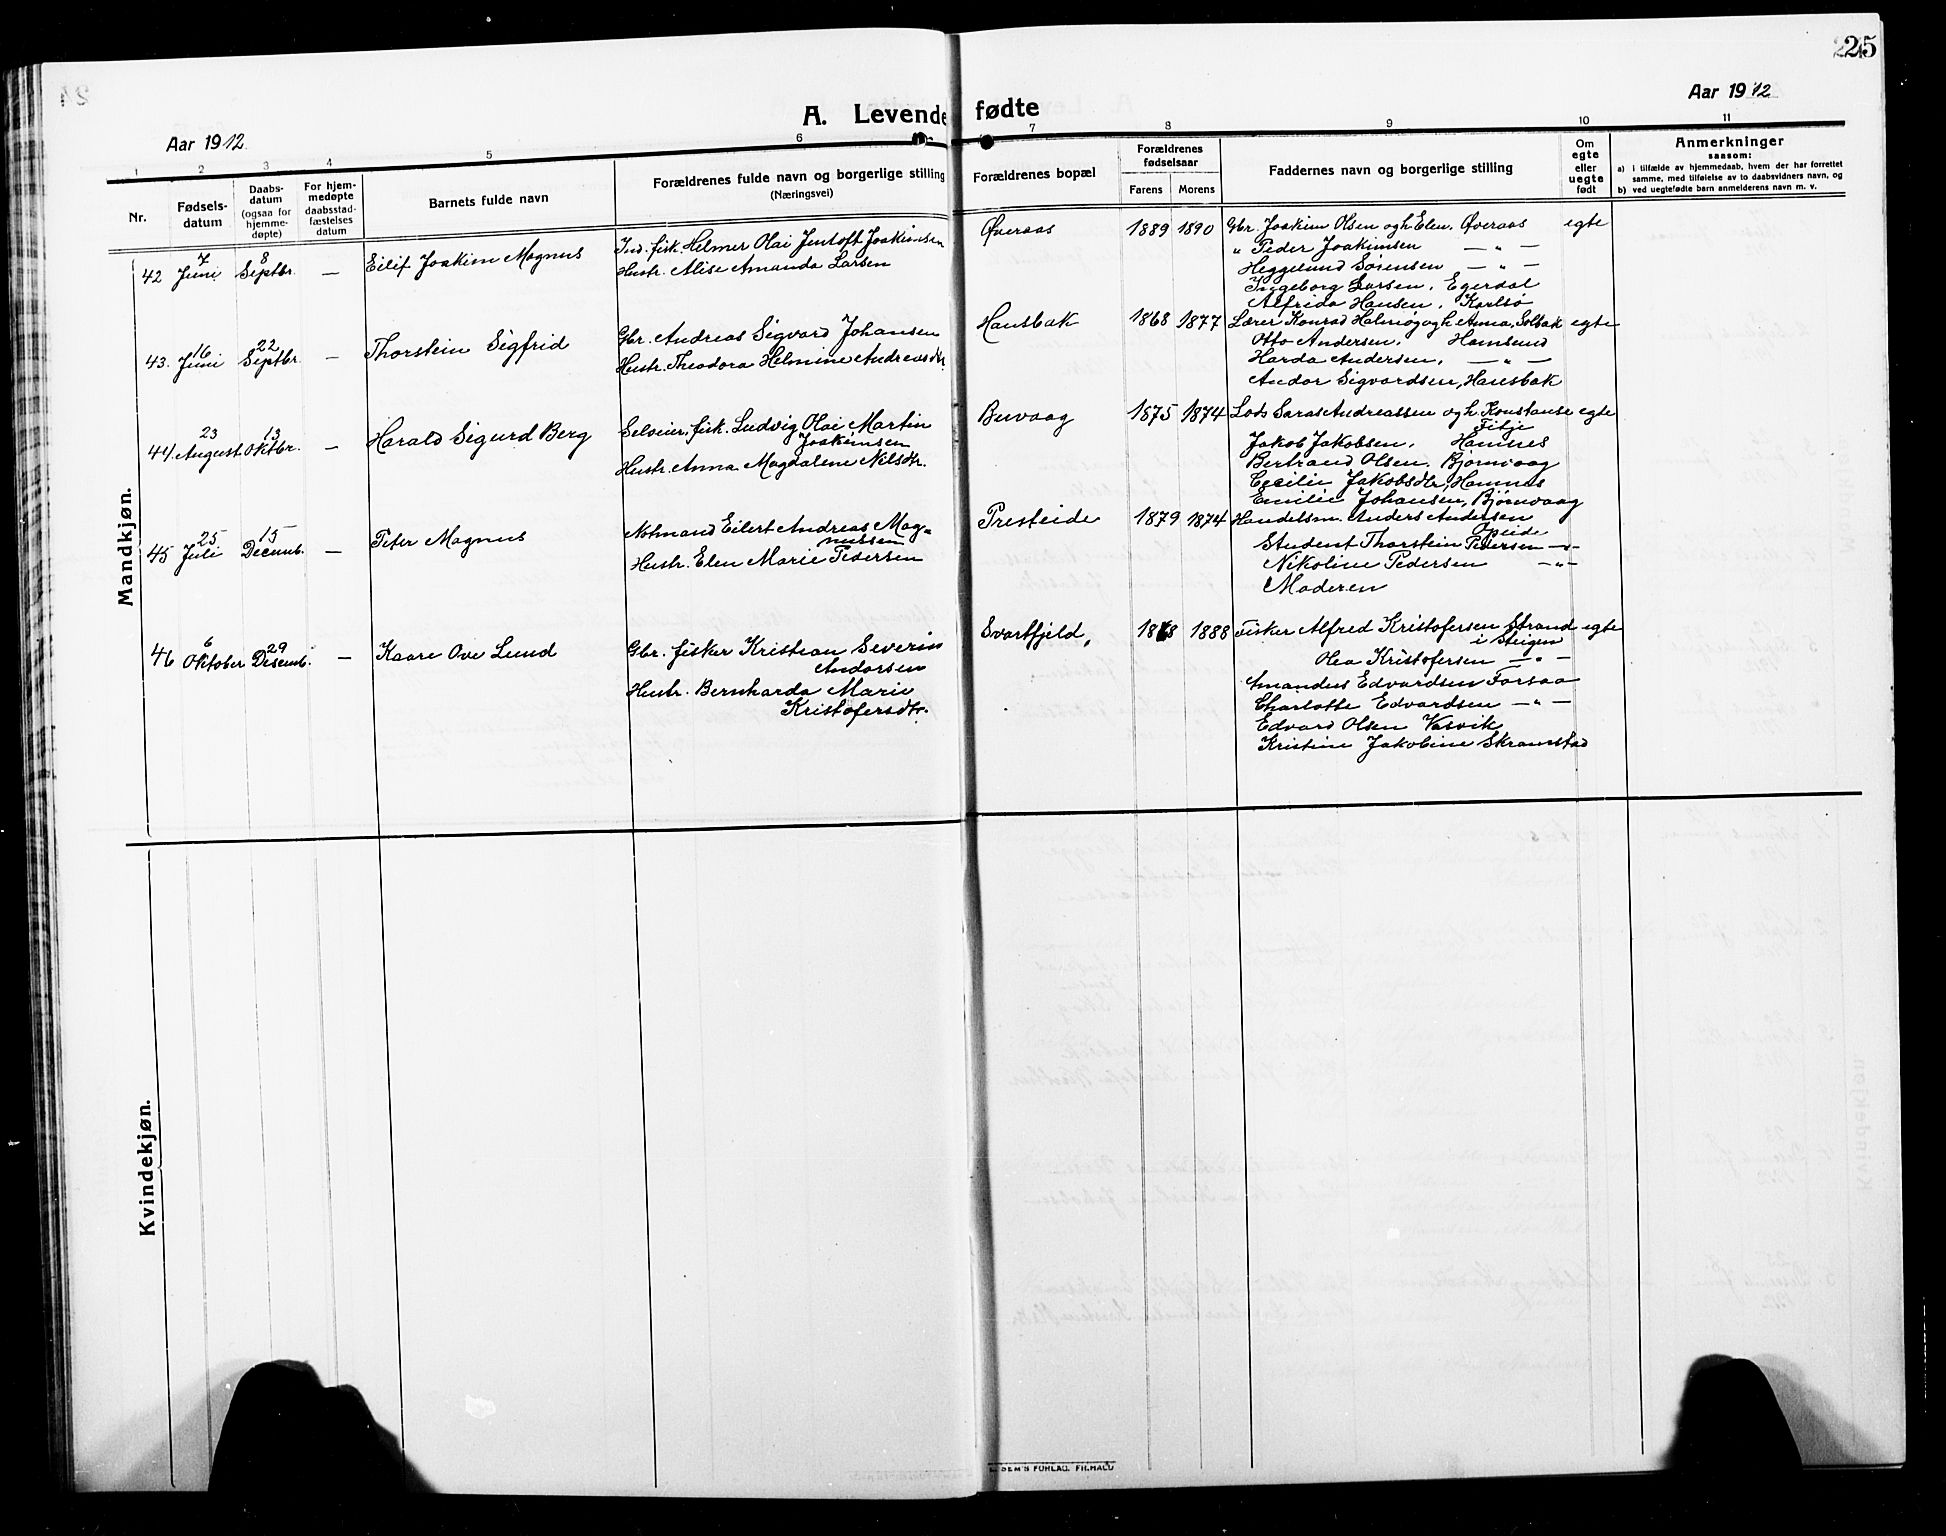 25
Aar 1912
A. Levende fødte
Aar 1912
1 2 3 4 5 6 7 8 9 10 11
Nr.
Fødsels-
datum
Daabs-
datum
(ogsaa for
hjemme-
døpte)
For hjem-
medøpte
daabsstad-
fæstelses
datum
Barnets fulde navn
Forældrenes fulde navn og borgerlige stilling
(Næringsvei)
Forældrenes bopæl
Forældrenes
fødselsaar
Farens Morens
Faddernes navn og borgerlige stilling
Om
egte
eller
uegte
født
Anmerkninger
saasom:
a) i tilfælde av hjemmedaab, hvem der har forrettet
samme, med tilføielse av to daabsvidners navn, og
b) ved uegtefødte barn anmelderens navn m. v.
Mandkjøn.
42 7 Juni 8 Septbr. — Eilif Joakim Magnus
Ind. fisk. Helmer Olai Jentoft Joakimsen
Hustr. Alise Amanda Larsen
Øveraas 1889 1890
Gbr. Joakim Olsen og h. Elen, Øveraas egte
" Peder Joakimsen — " —
Heggelund Sørensen — " —
Ingeborg Larsen, Egerdal
Alfrida Hansen, Karlsø
43. 16 Juni 22 Septbr. — Thorstein Sigfrid
Gbr. Andreas Sigvard Johansen
Hustr. Theodora Helmine Andreasdtr.
Hansbak 1868 1877
Lærer Konrad Halmøg og h. Anna, Solbak egte
Otto Andersen, Hamsund
Harda Andersen, — " —
Andor Sigvardsen, Hansbak
44. 23 August 13 Oktbr. — Harald Sigurd Berg
Selveier, fisk. Ludvig Olai Martin
Joakimsen
Hustr. Anna Magdalene Nilsdtr.
Buvaag 1875 1874
Lods Saras Andreassen og h. Konstanse egte
Fitje
Jakob Jakobsen, Hamnes
Bertrand Olsen, Bjørnvaag
Cecilie Jakobsdtr, Hamnes
Emilie Johansen, Bjørnvaag
45 25 Juli 15 Decemb. — Peter Magnus
Notmand Eilert Andreas Mag-
nussen
Hustr. Elen Marie Pedersen
Presteide 1879 1874
Handelsm. Anders Andersen
Opeide
Student Thorstein Pedersen — " —
Nikoline Pedersen — " —
Moderen
46 6 Oktober 29 Desemb. — Kaare Ove Lund
Gbr. fisker Kristian Severin
Andorsen
Hustr. Bernharda Marie
Kristofersdtr.
Svartfjeld, 1888
Fisker Alfred Kristofersen Strand egte
i Steigen
Olea Kristofersen — " —
Amandus Edvardsen Forsaa
Charlotte Edvardsen — " —
Edvard Olsen Vasvik
Kristine Jakobine Skramstad
Kvindekjøn.
SEM'S FORLAG, FR.HALD